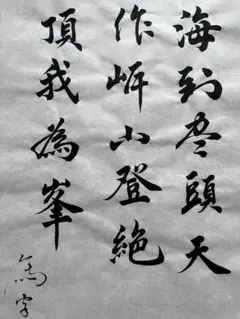 海到尽頭天
作岸山登絶
頂我為峯